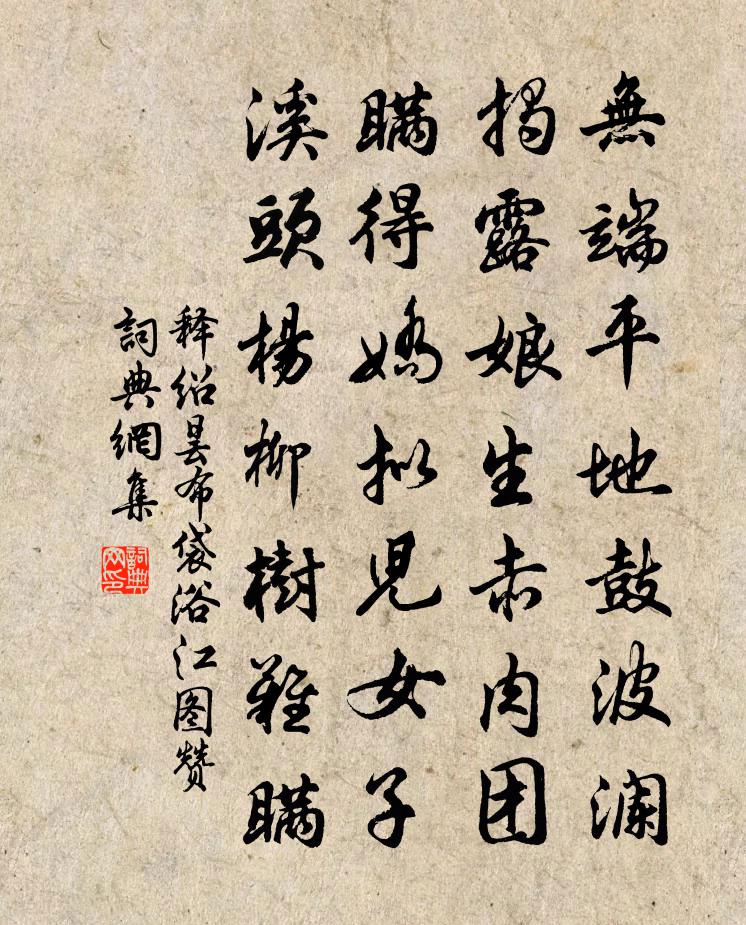 無端平地鼓波瀾
揭露娘生赤肉团
瞞得嬌痴児女子
溪頭楊柳樹難瞞
释绍曇布袋浴江图赞
詞典網集
詞典网印